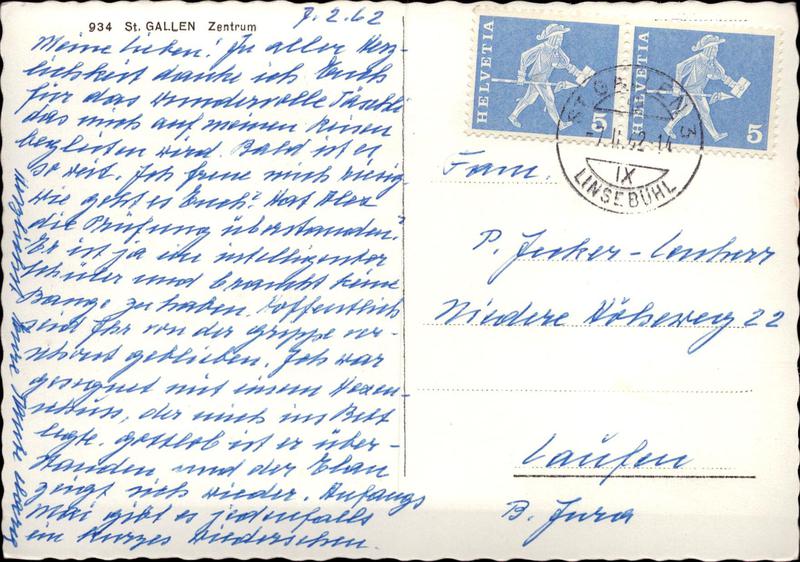 934 St. GALLEN Zentrum
7.2.62
Meine Lieben! In aller Herz-
lichkeit danke ich Euch
für das wundervolle Täschli
das mich auf meinen Reisen
begleiten wird. Bald ist es
so weit. Ich freue mich riesig.
Wie geht es Euch? Hat Alex
die Prüfung überstanden?
Er ist ja ein intelligenter
Schüler und braucht keine
Bange zu haben. Hoffentlich
seid Ihr von der Grippe ver-
schont geblieben. Ich war
gesegnet mit einem Hexen-
schuss, der mich ins Bett
legte. Gottlob ist er über-
standen und der Elan
zeigt sich wieder. Anfangs
Mai gibt es jedenfalls
ein kurzes Wiedersehen.
Eure
HELVETIA 5
HELVETIA 5
ST. GALLEN 3
7.II.62-14
IX
LINSEBÜHL
Fam.
P. Jecker-Lenherr
Niedere Höheweg 22
Laufen
B. Jura